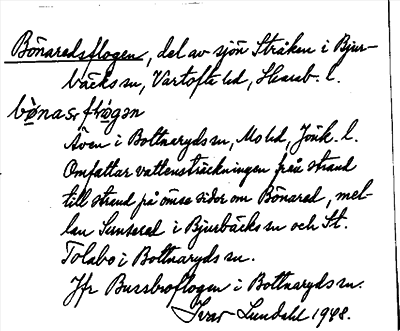 Bönaredsflogen, del av sjön Stråken i Bjur-
bäcks sn, Vartofta hd, Skarab. l.
bònasflògən
Även i Bottnaryds sn, Mo hd, Jönk. l.
Omfattar vattensträckningen från strand
till strand på ömse sidor om Bönared, mel-
lan Sunsered i Bjurbäcks sn och St.
Tolabo i Bottnaryds sn.
Jfr Bussboflogen i Bottnaryds sn.
Ivar Lundahl 1948.